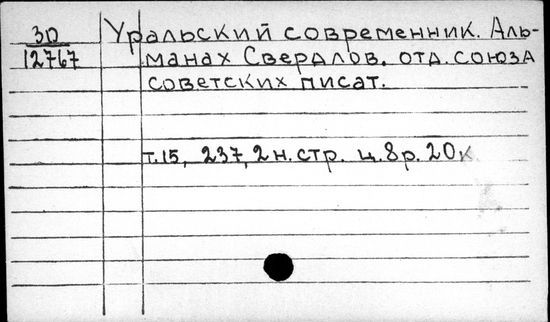 30 Уральский современник. Аль-
12767 манах Свердлов. отд. союза
советских писат.
т.15, 237, 2 н. стр. ц. 8 р. 20 к.